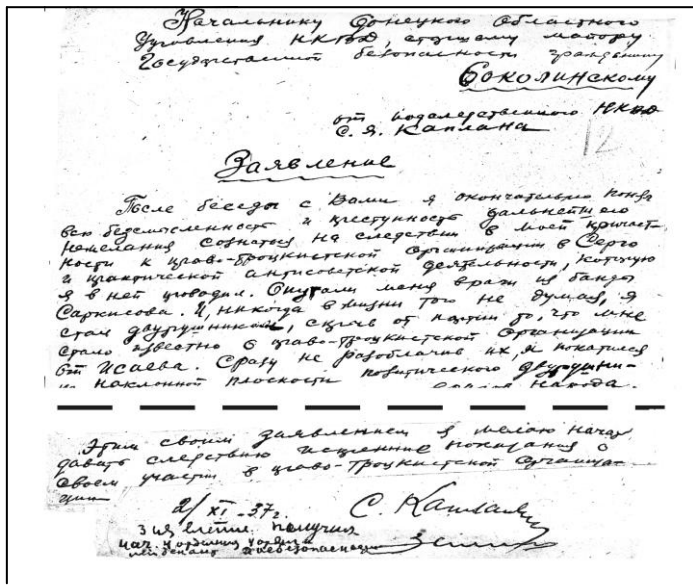 Начальнику Донецкого Областного
Управления НКВД, старшему майору
Государственной безопасности гражданину
Соколинскому
от подследственного НКВД
С. Я. Каплана
12
Заявление
После беседы с Вами я окончательно понял
всю бессмысленность и преступность дальнейшего
нежелания сознаться на следствии в моей причаст-
ности к право-троцкистской организации в Серго
и практической антисоветской деятельности, которую
я в ней проводил. Опутали меня враги из банды
Саркисова. И, никогда в жизни того не думая, я
стал двурушником, скрыв от партии то, что мне
стало известно о право-троцкистской организации
от Исаева. Сразу не разоблачив их, я покатился
по наклонной плоскости политического двуруши-
народа.
Этим своим заявлением я желаю начать
давать следствию искренние показания о
своем участии в право-троцкистской организа-
ции
2/XI-37г. С. Каплан
Заявление получил
нач.
лейтенант госбезопасности